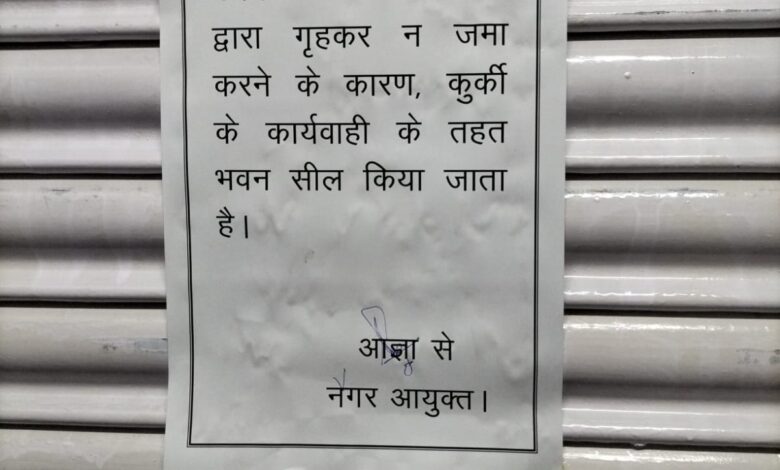 द्वारा गृहकर न जमा
करने के कारण, कुर्की
के कार्यवाही के तहत
भवन सील किया जाता
है।
आज्ञा से
नगर आयुक्त।